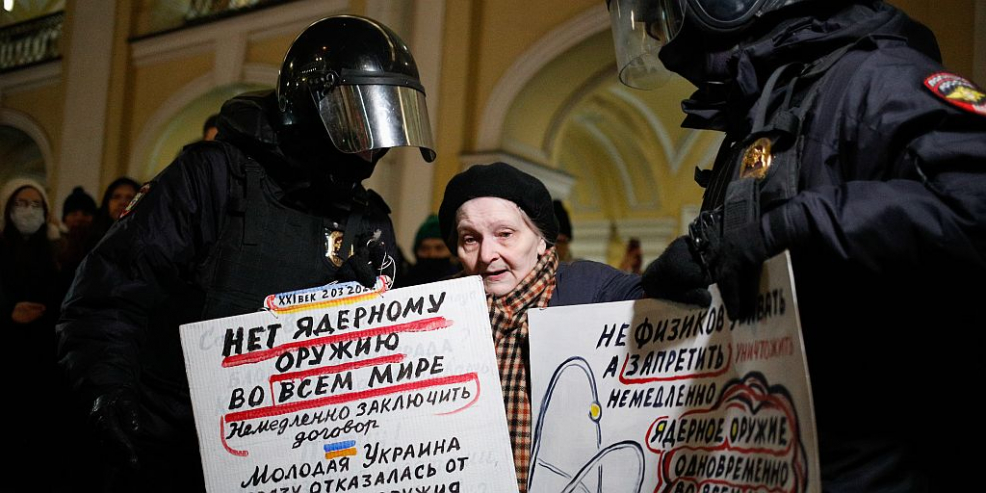 XXI ВЕК 2 03
НЕТ ЯДЕРНОМУ
ОРУЖИЮ
ВО ВСЕМ МИРЕ
Немедленно заключить
договор
МОЛОДАЯ УКРАИНА
ОТКАЗАЛАСЬ ОТ
НЕ ФИЗИКОВ
А ЗАПРЕТИТЬ УНИЧТОЖИТЬ
НЕМЕДЛЕННО
ЯДЕРНОЕ ОРУЖИЕ
ОДНОВРЕМЕННО